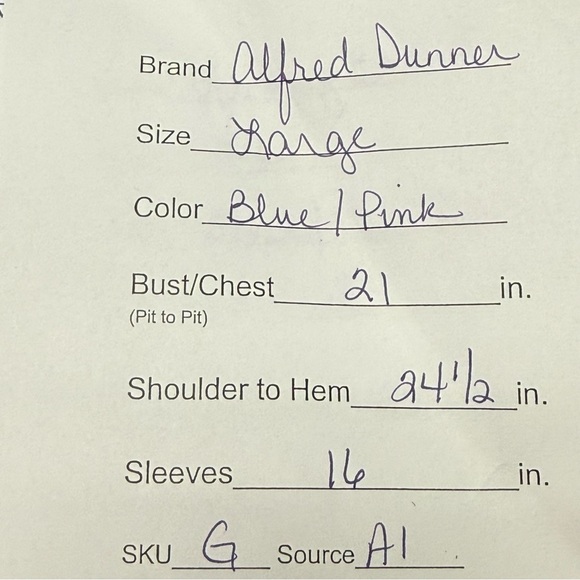 Brand Alfred Dunner
Size Large
Color Blue / Pink
Bust/Chest 21 in.
(Pit to Pit)
Shoulder to Hem 24 1/2 in.
Sleeves 16 in.
SKU G Source A1